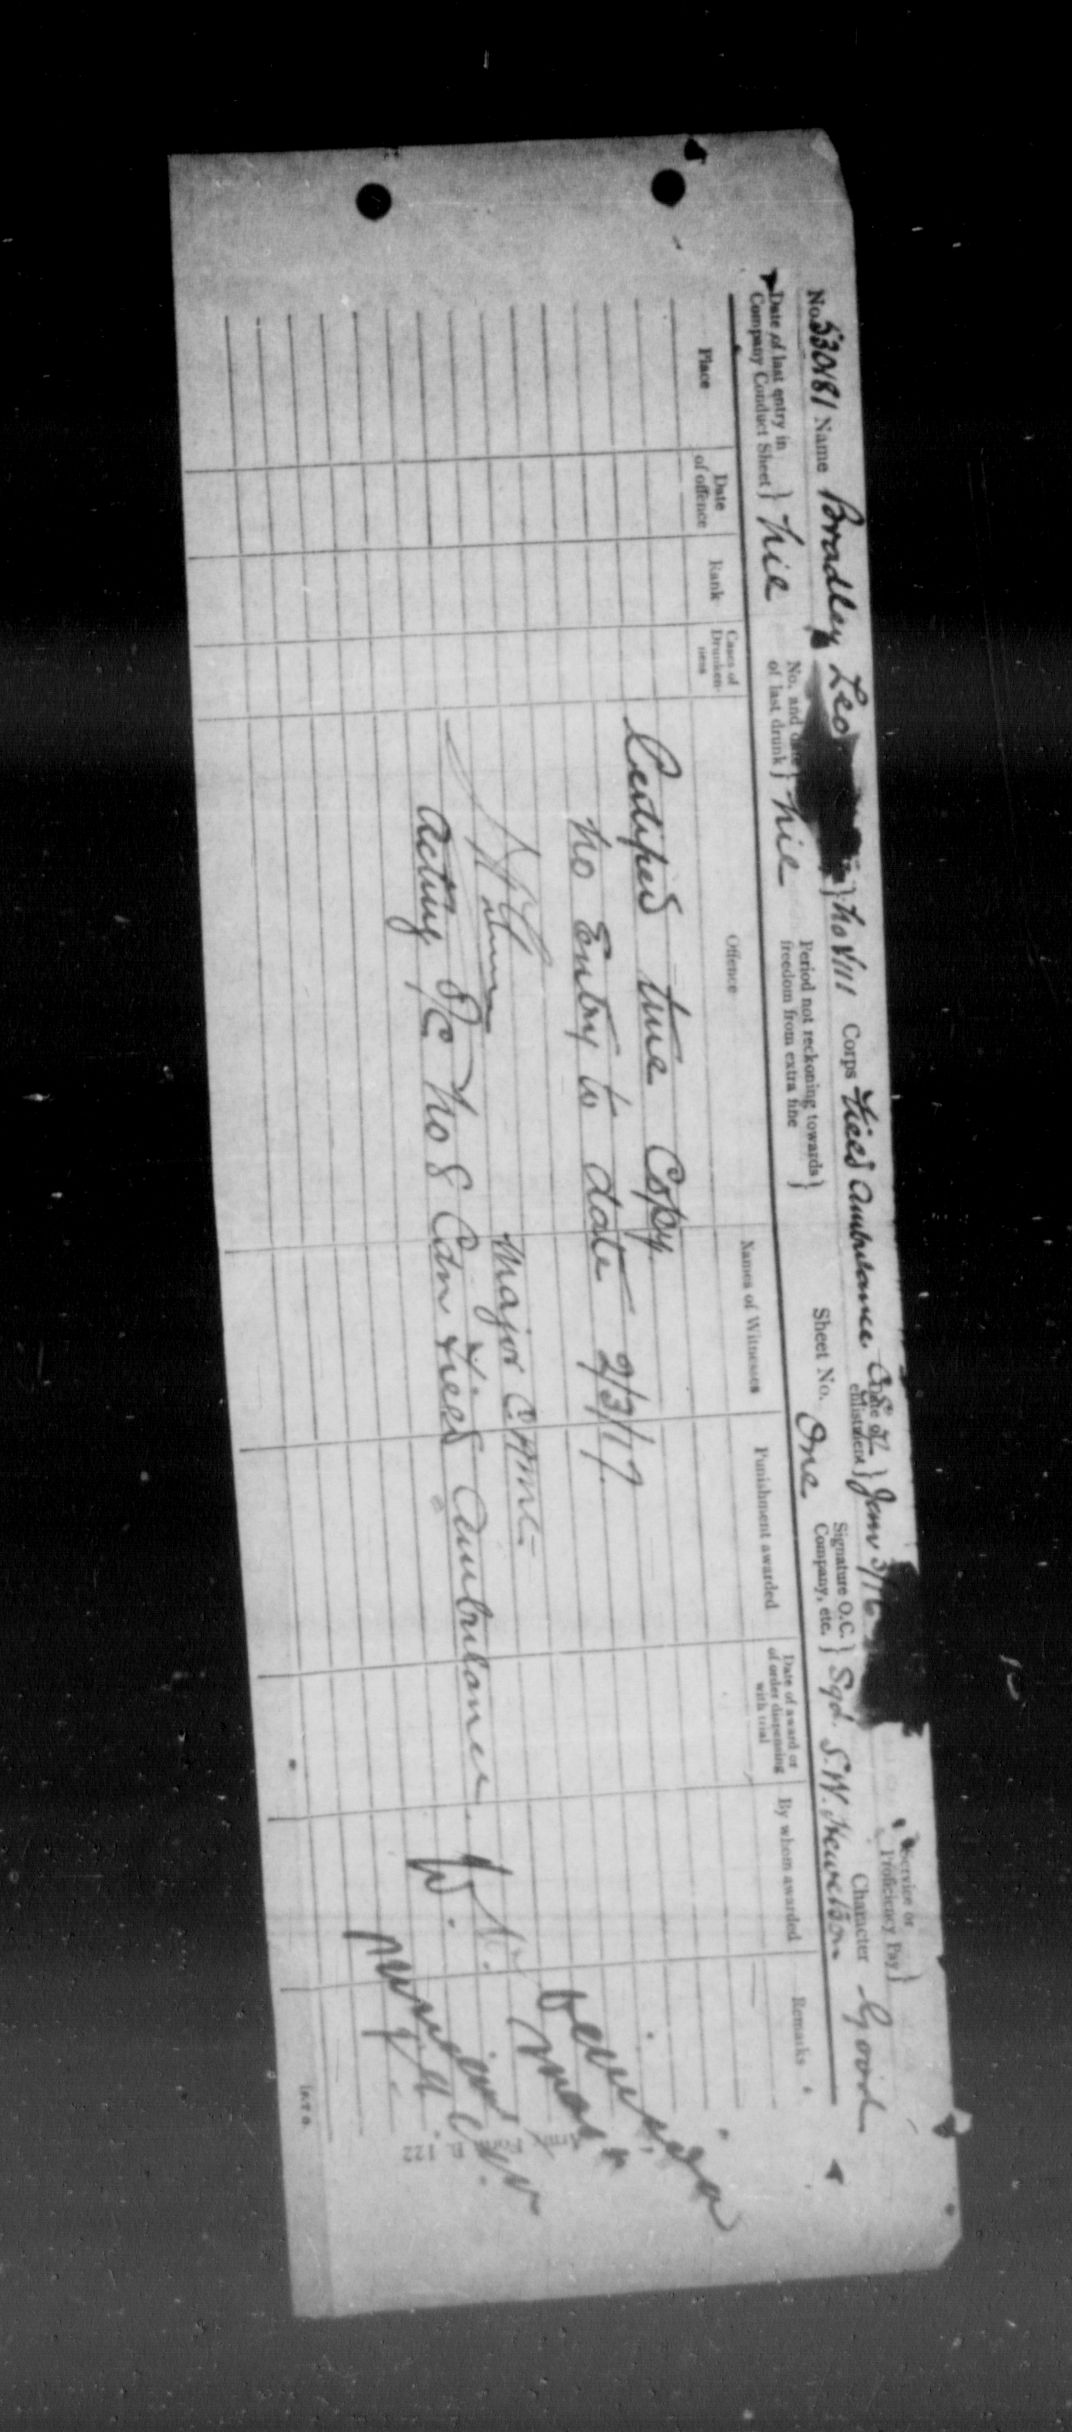 No. 530181 Name Bradley Leo } No VIII Corps Field Ambulance Date of enlistment } Janv 3/16 Service or Proficiency Pay }
Date of last entry in Company Conduct Sheet } Nil No. and date of last drunk } Nil Period not reckoning towards freedom from extra fine } Sheet No. One Signature O.C. Company, etc. } Sgd. S.W. Character Good
Place Date of offence Rank Cases of Drunkenness Offence Names of Witnesses Punishment awarded Date of award or of order dispensing with trial By whom awarded Remarks
Certified true Copy
No Entry to date 2/3/17.
Major C.A.M.C.
Acting O/C No 8 Cdn Field Ambulance.
Army Form B. 122
[P.T.O.